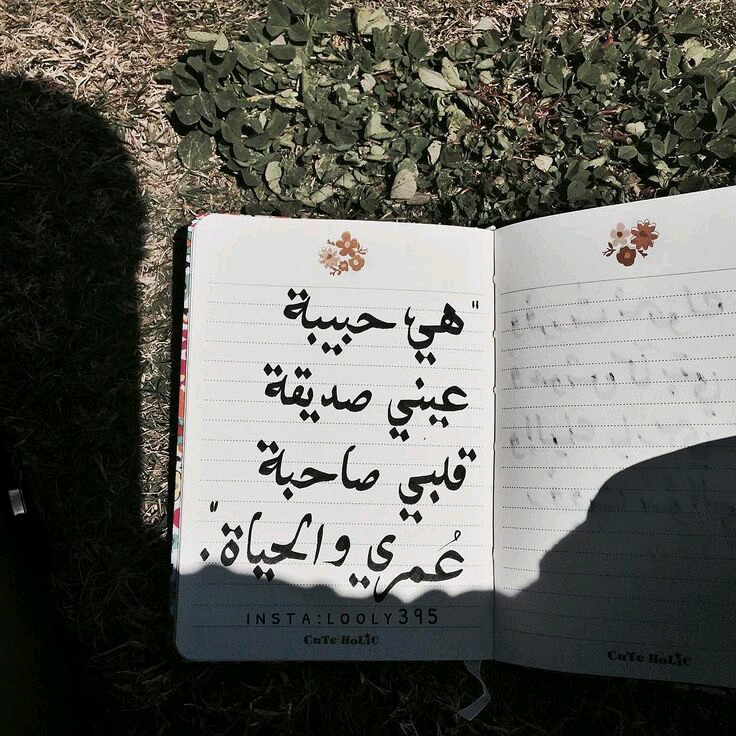 "هي، حبيبة
عيني صديقة
قلبي صاحبة
عُمري والحياة".
INSTA:LOOLY395
CuTe HoLiC
CuTe HoLiC